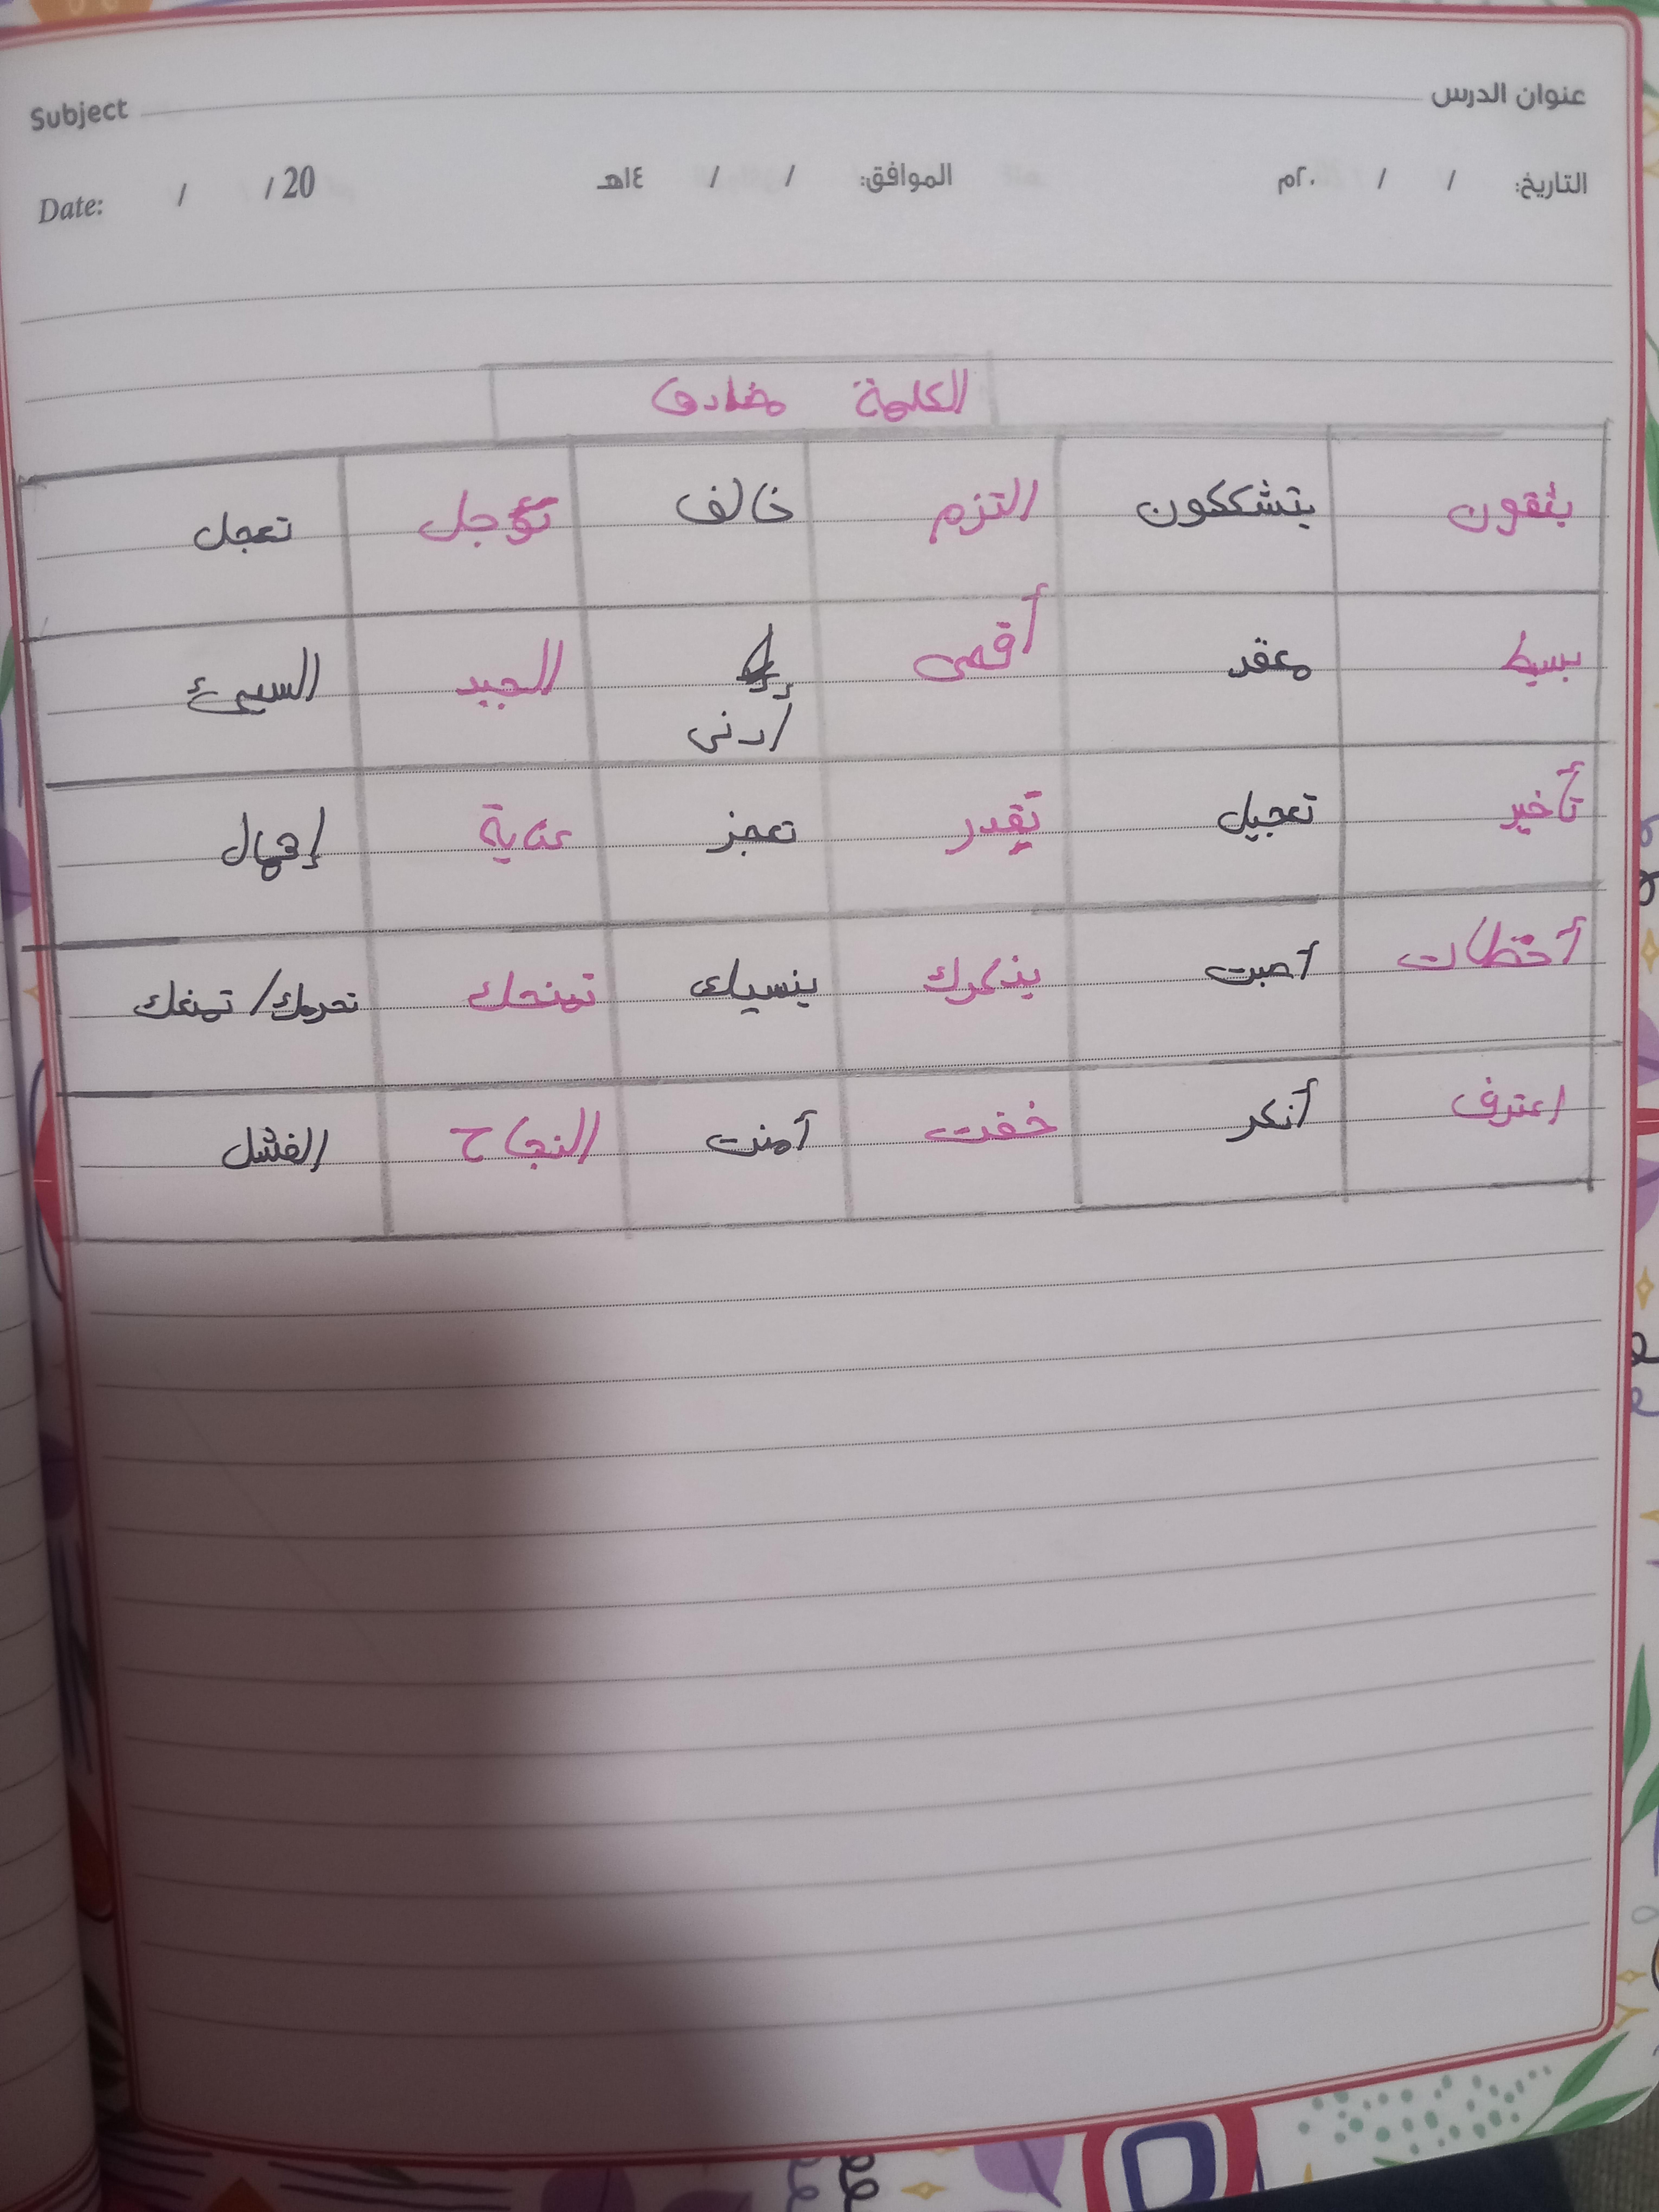 عنوان الدرس Subject
التاريخ: / / ٢٠م الموافق: / / ١٤هـ Date: / / 20
الكلمة مضادها
يثقون يتشككون التزم خالف تؤجل تعجل
بسيط معقد أقصى أدنى الجيد السيئ
تأخير تعجيل تقدر تعجز عناية إهمال
أخطات أصبت يذكرك ينسيك تمنحك تحرمك/تمنعك
اعترف أنكر خفت أمنت النجاح الفشل